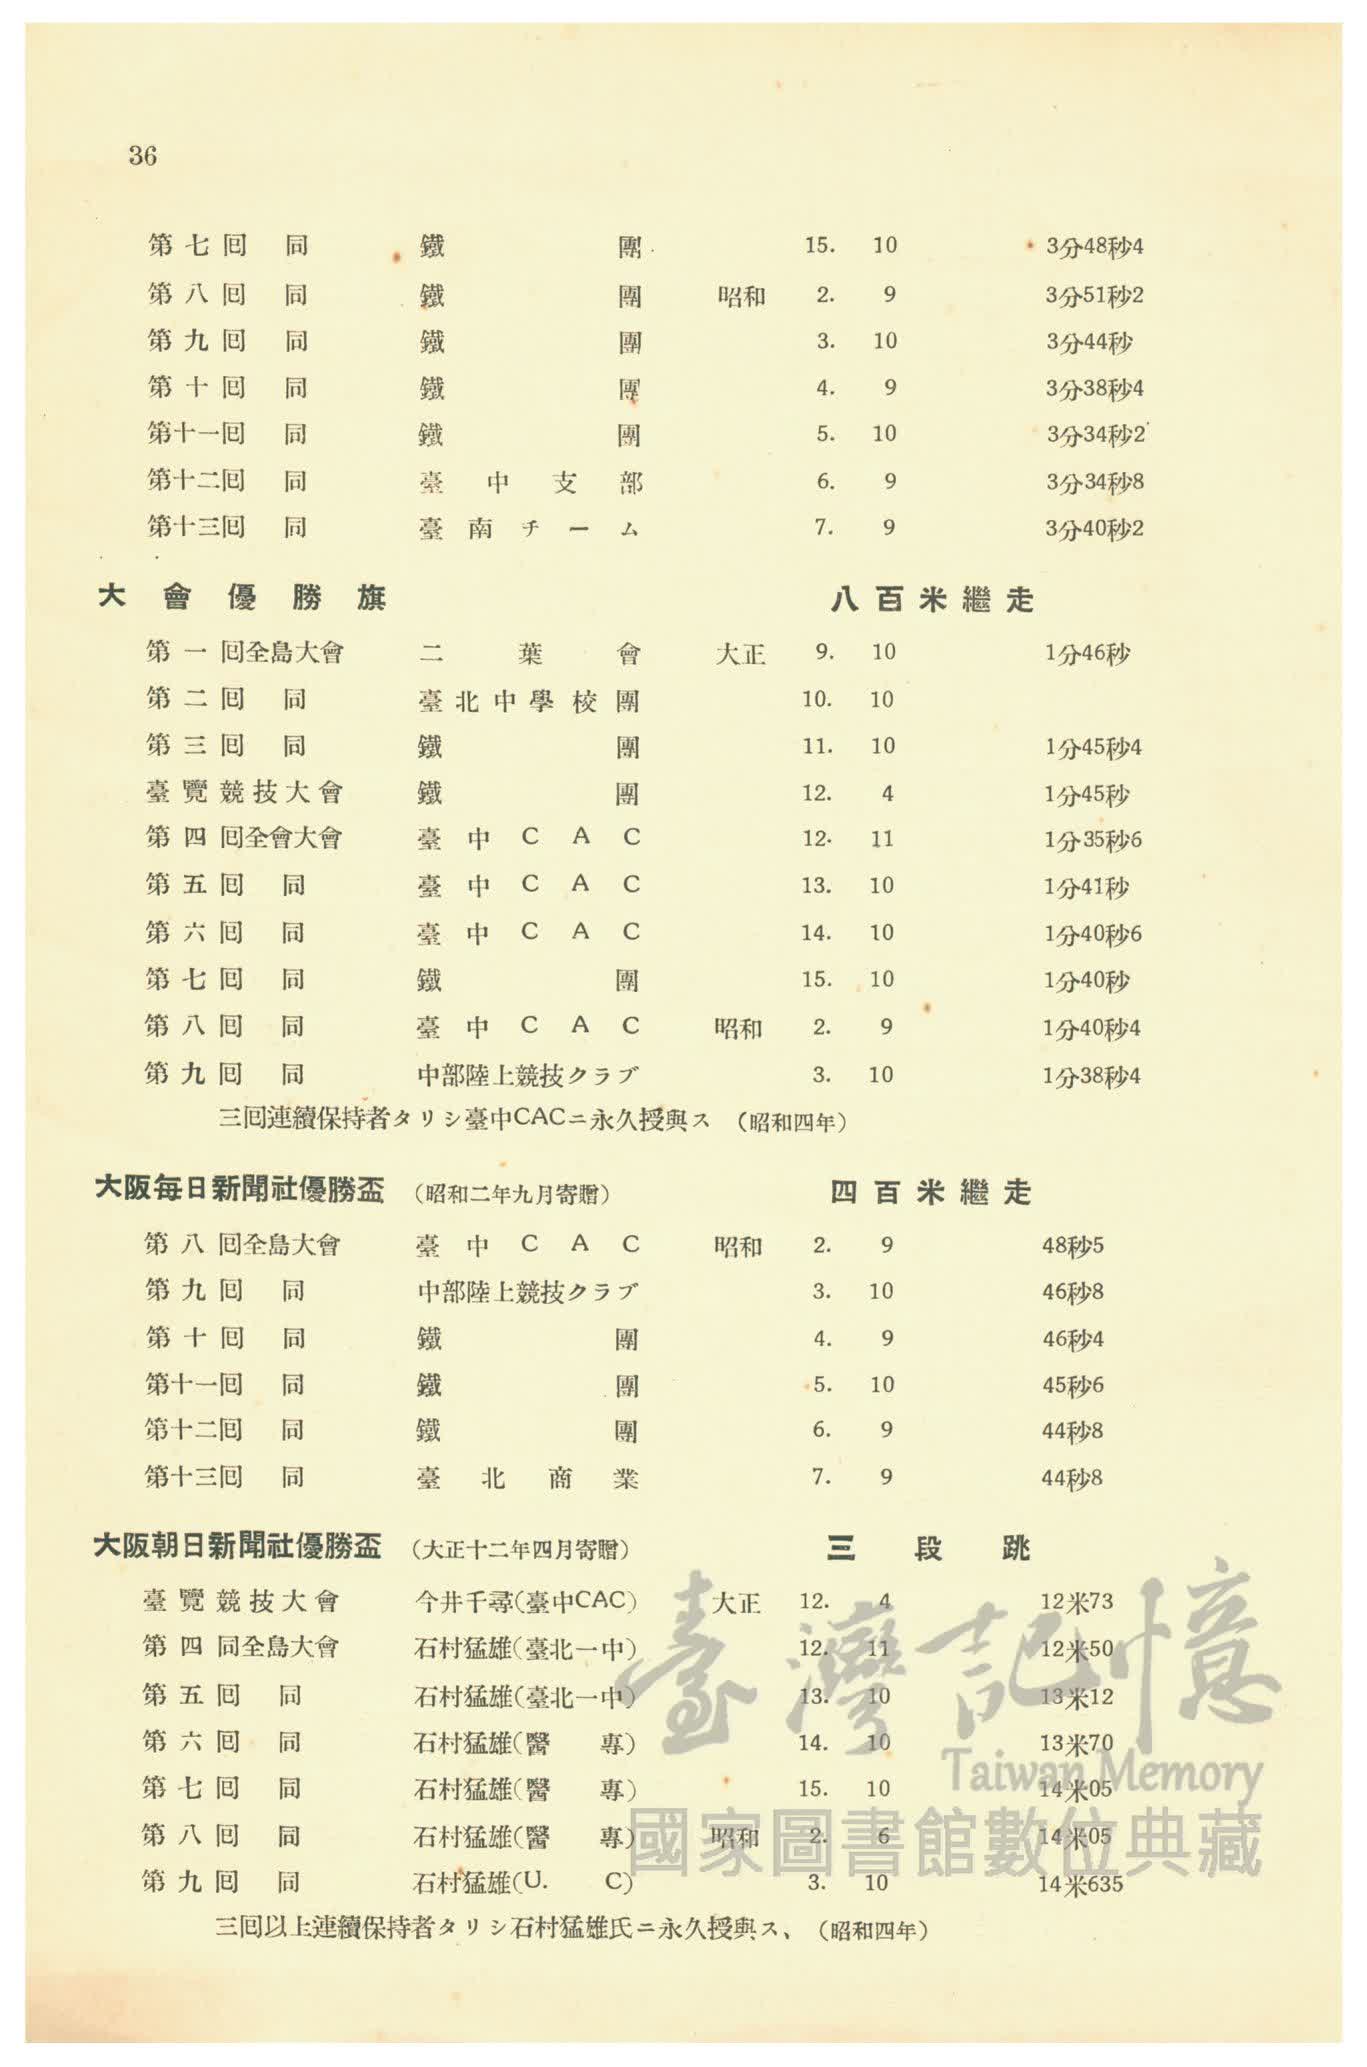 36
第七回 同 鐵團 15. 10 3分48秒4
第八回 同 鐵團 昭和 2. 9 3分51秒2
第九回 同 鐵團 3. 10 3分44秒
第十回 同 鐵團 4. 9 3分38秒4
第十一回 同 鐵團 5. 10 3分34秒2
第十二回 同 臺中支部 6. 9 3分34秒8
第十三回 同 臺南チーム 7. 9 3分40秒2
大會優勝旗 八百米繼走
第一回全島大會 二葉會 大正 9. 10 1分46秒
第二回 同 臺北中學校團 10. 10
第三回 同 鐵團 11. 10 1分45秒4
臺覽競技大會 鐵團 12. 4 1分45秒
第四回全會大會 臺中CAC 12. 11 1分35秒6
第五回 同 臺中CAC 13. 10 1分41秒
第六回 同 臺中CAC 14. 10 1分40秒6
第七回 同 鐵團 15. 10 1分40秒
第八回 同 臺中CAC 昭和 2. 9 1分40秒4
第九回 同 中部陸上競技クラブ 3. 10 1分38秒4
三回連續保持者タリシ臺中CACニ永久授與ス (昭和四年)
大阪每日新聞社優勝盃 (昭和二年九月寄贈) 四百米繼走
第八回全島大會 臺中CAC 昭和 2. 9 48秒5
第九回 同 中部陸上競技クラブ 3. 10 46秒8
第十回 同 鐵團 4. 9 46秒4
第十一回 同 鐵團 5. 10 45秒6
第十二回 同 鐵團 6. 9 44秒8
第十三回 同 臺北商業 7. 9 44秒8
大阪朝日新聞社優勝盃 (大正十二年四月寄贈) 三段跳
臺覽競技大會 今井千尋(臺中CAC) 大正 12. 4 12米73
第四同全島大會 石村猛雄(臺北一中) 12. 11 12米50
第五回 同 石村猛雄(臺北一中) 13. 10 13米12
第六回 同 石村猛雄(醫專) 14. 10 13米70
第七回 同 石村猛雄(醫專) 15. 10 14米05
第八回 同 石村猛雄(醫專) 昭和 2. 6 14米05
第九回 同 石村猛雄(U. C) 3. 10 14米635
三回以上連續保持者タリシ石村猛雄氏ニ永久授與ス、(昭和四年)
臺灣記憶
Taiwan Memory
國家圖書館數位典藏